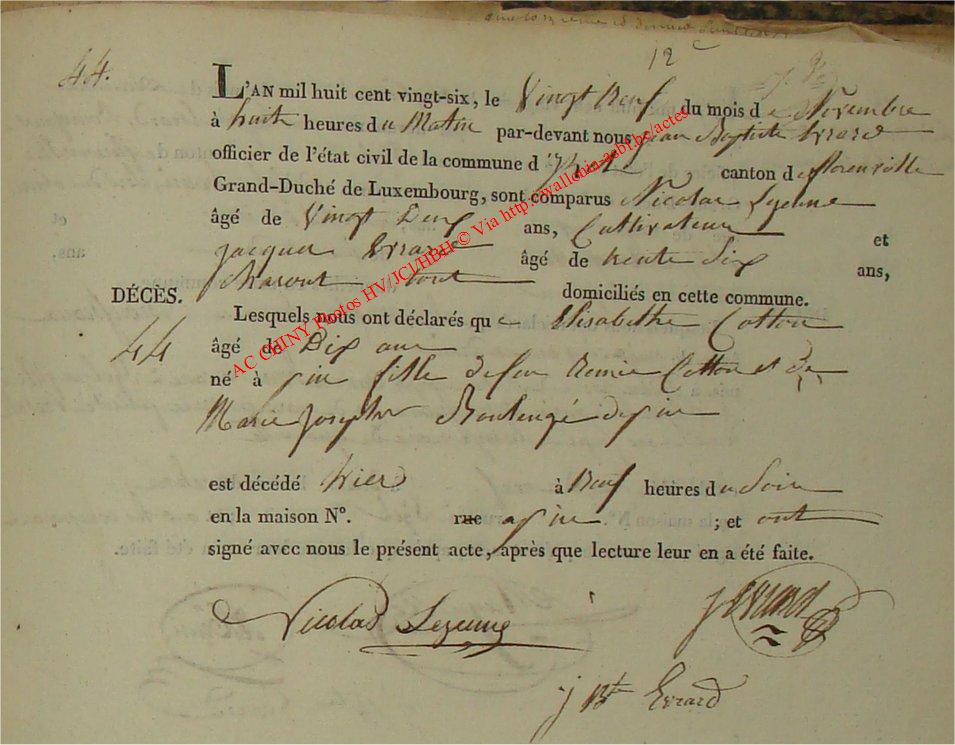 12
44.
L'AN mil huit cent vingt-six, le Vingt Neuf du mois de Novembre
à huit heures du Matin par-devant nous jean Baptiste Evrard
officier de l'état civil de la commune d' canton de florenville
Grand-Duché de Luxembourg, sont comparus Nicolas Lejeune
âgé de Vingt Deux ans, Cultivateur et
jacques Evrard âgé de trente Six ans,
tout domiciliés en cette commune.
DÉCÈS.
Lesquels nous ont déclarés que Elisabethe Cotton
44
âgé de Dix ans
né à fille de feu Remie Cotton et de
Marie josephe Boulengé
est décédé hier à Neuf heures du Soir
en la maison N°. rue ; et ont
signé avec nous le présent acte, après que lecture leur en a été faite.
Nicolas Lejeune
J Evrard
j Bte Evrard
AC CHINY Photos HV/JCl/HBH © Via http://wallonia-asbl.be/actes